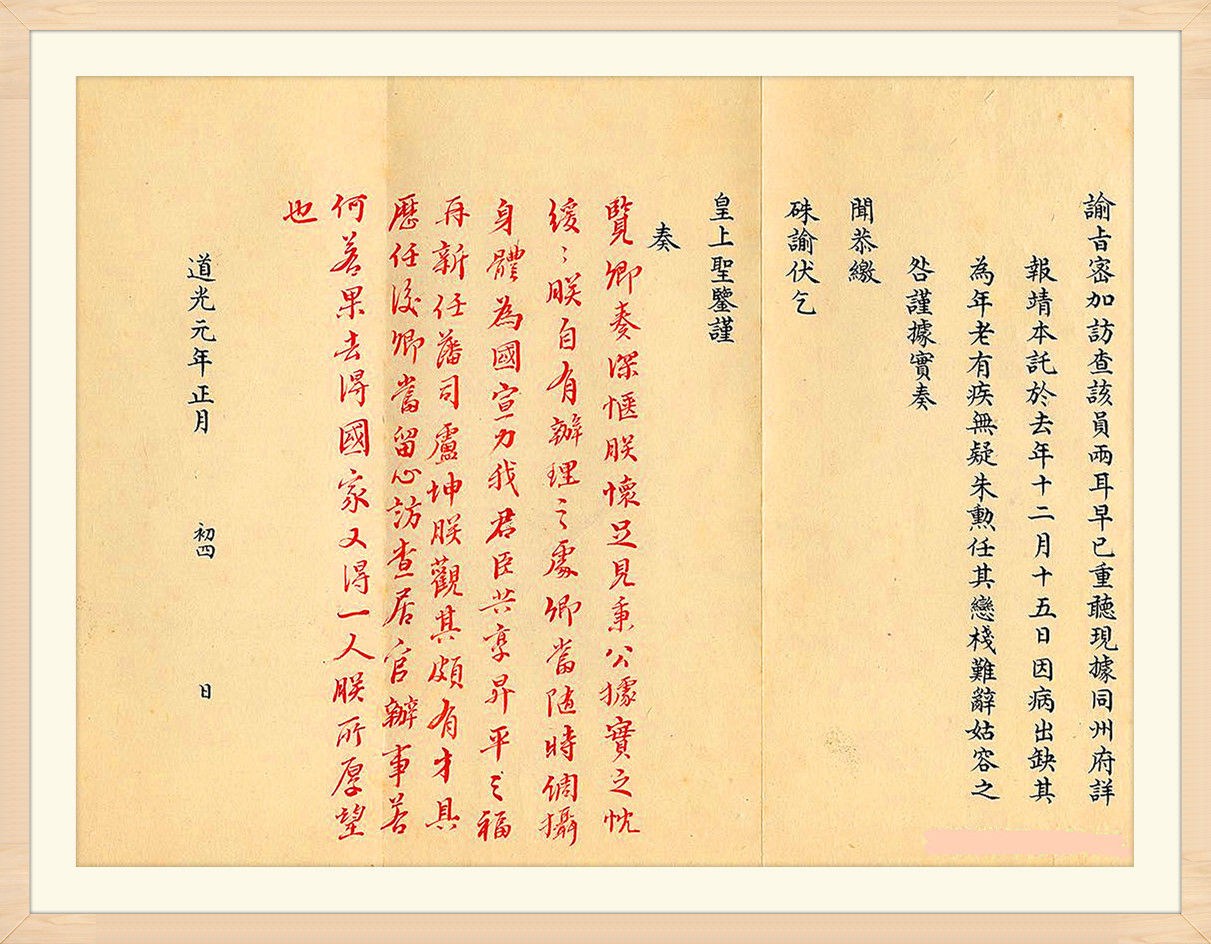 諭旨密加訪查該員兩耳早已重聽現據同州府詳
報靖本託於去年十二月十五日因病出缺其
為年老有疾無疑朱勲任其戀棧難辭姑容之
咎謹據實奏
聞恭繳
硃諭伏乞
皇上聖鑒謹
奏
覽卿奏深愜朕懷足見秉公據實之忱
緩〻朕自有辦理之處卿當隨時調攝
身體為國宣力我君臣共享昇平之福
再新任藩司盧坤朕觀其頗有才具
歷任後卿當留心訪查居官辦事若
何若果去得國家又得一人朕所厚望
也
道光元年正月 初四 日